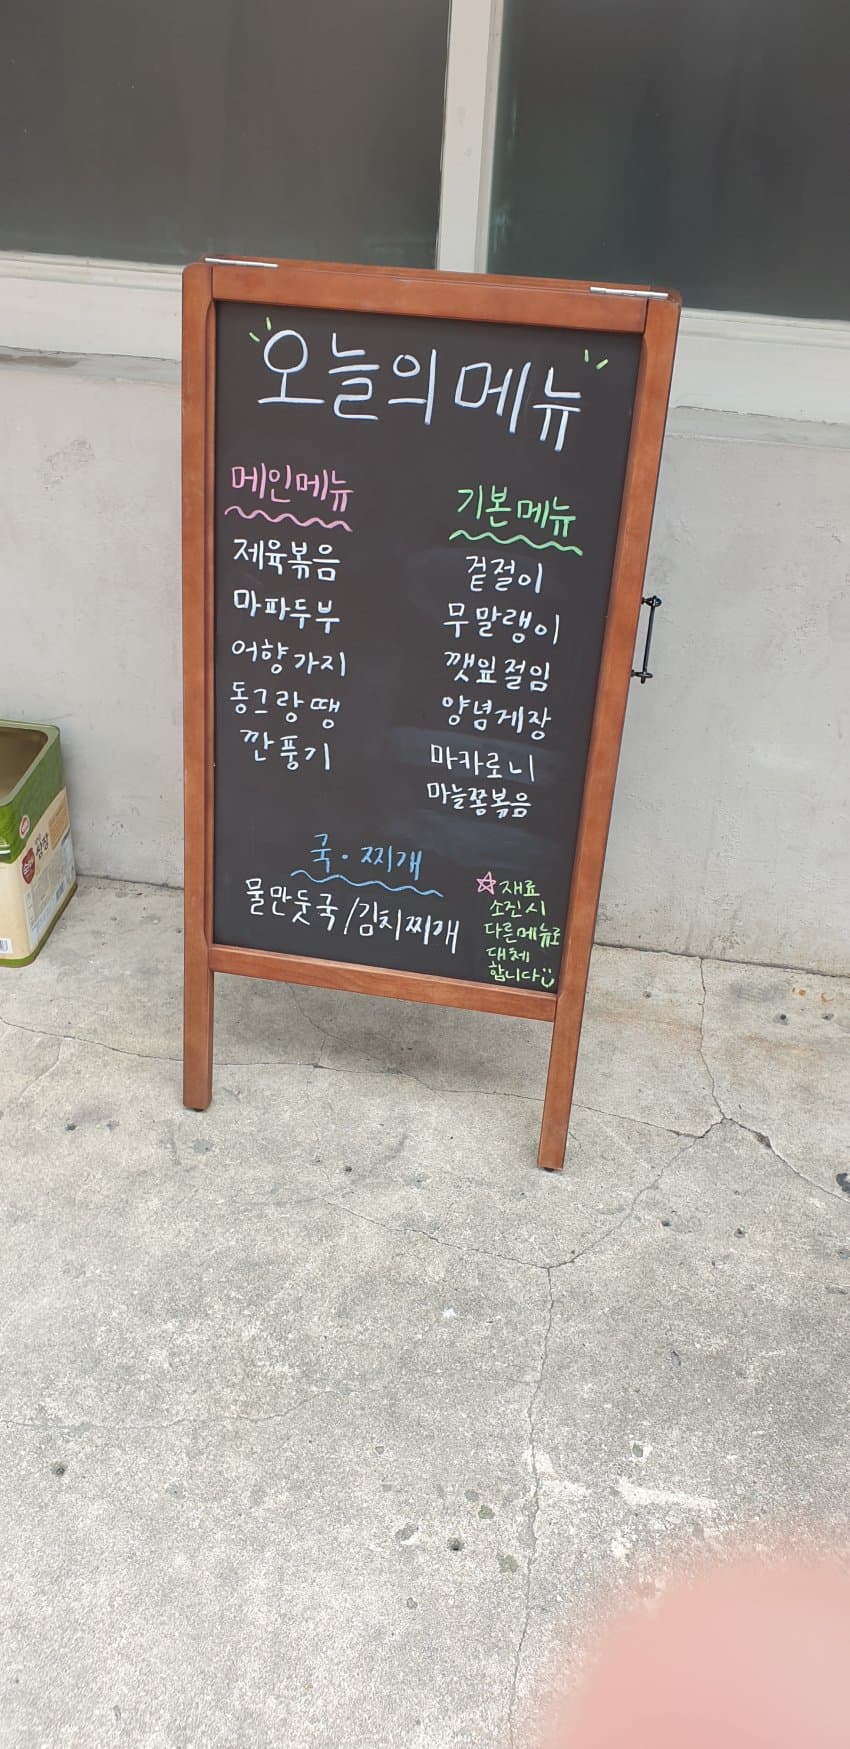 오늘의 메뉴
메인메뉴
제육볶음
마파두부
어향가지
동그랑땡
깐풍기
기본메뉴
겉절이
무말랭이
깻잎절임
양념게장
마카로니
마늘쫑볶음
국·찌개
물만둣국/김치찌개
☆재료
소진시
다른메뉴로
대체
합니다